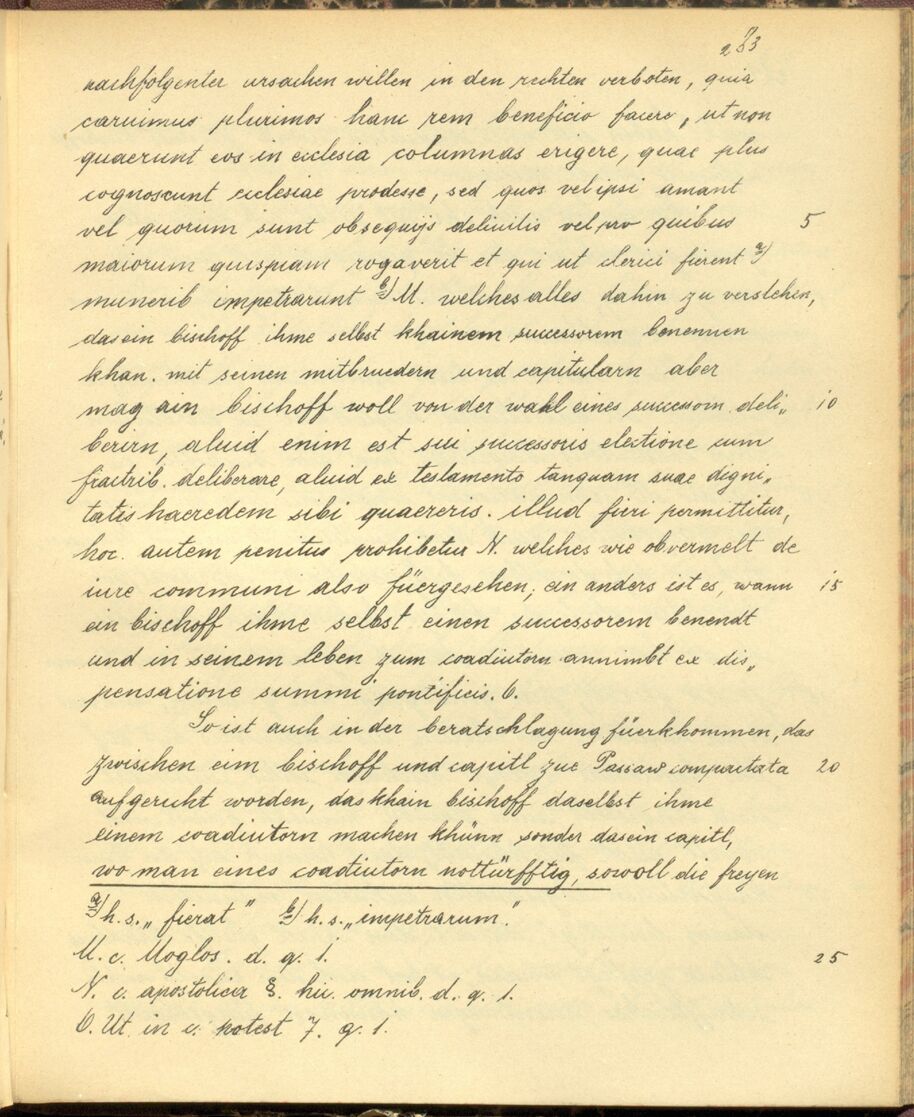 273
nachfolgenter ursachen willen in den rechten verboten, quia
caruimus plurimos hanc rem beneficio facere, ut non
quaerunt eos in ecclesia columnas erigere, quae plus
cognoscunt ecclesiae prodesse, sed quos vel ipsi amant
vel quorum sunt obsequijs delinitis vel pro quibus 5
maiorum quispiam rogaverit et qui ut clerici fierent a)
munerib impetrarunt b) M. welches alles dahin zu verstehen,
das ein bischoff ihme selbst khainem successorem benennen
khan. mit seinen mitbruedern und capitularn aber
mag ain bischoff woll von der wahl eines successorn deli„ 10
berirn, aluid enim est sui successoris electione cum
fratrib. deliberare, aluid ex testamento tanquam suae digni„
tatis haeredem sibi quaereris. illud fieri permittitur,
hoc. autem penitus prohibetur N. welches wie obvermelt de
iure communi also füergesehen; ein anders ist es, wann 15
ein bischoff ihme selbst einen successorem benendt
und in seinem leben zum coadiutorn annimbt ex dis„
pensatione summi pontificis. O.
So ist auch in der beratschlagung füerkhommen, das
zwischen eim bischoff und capitl zue Passaw compactata 20
aufgericht worden, das khain bischoff daselbst ihme
einem coadiutorn machen khünn sonder das ein capitl,
wo man eines coadiutorn nottürfftig, sowoll die freyen
a) h. s. „fierat" b) h. s. „impetrarum".
M. c. Moglos. d. q. 1. 25
N. c. apostolica §. hic. omnib. d. q. 1.
O. Ut in c. potest 7. q. 1.